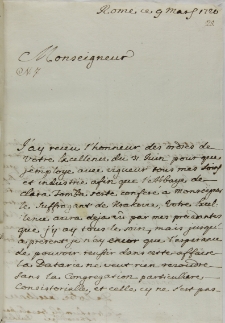 Rome ce 9 Mars 1726
Monseigneur
J'ay receu l'honneur des ordres de
Votre Excellence du 21 Juin pour que
j'employe avec vigueur tous mes soins
et industrie afin que l'Abbaye de
Clara Tomba reste conferé a Monseigneur
le Suffragant de Krakovie, Votre Excel
lence aura deja vû par mes precedentes
que j'y ay tous les soins, mais jusqu'
a present je n'ay encor que l'esperance
de pouvoir reussir dans cette affaire
la Daterie ne veut rien resoudre
sans la Congregation particuliere
Consistoriale, et celle cy ne s'est pas